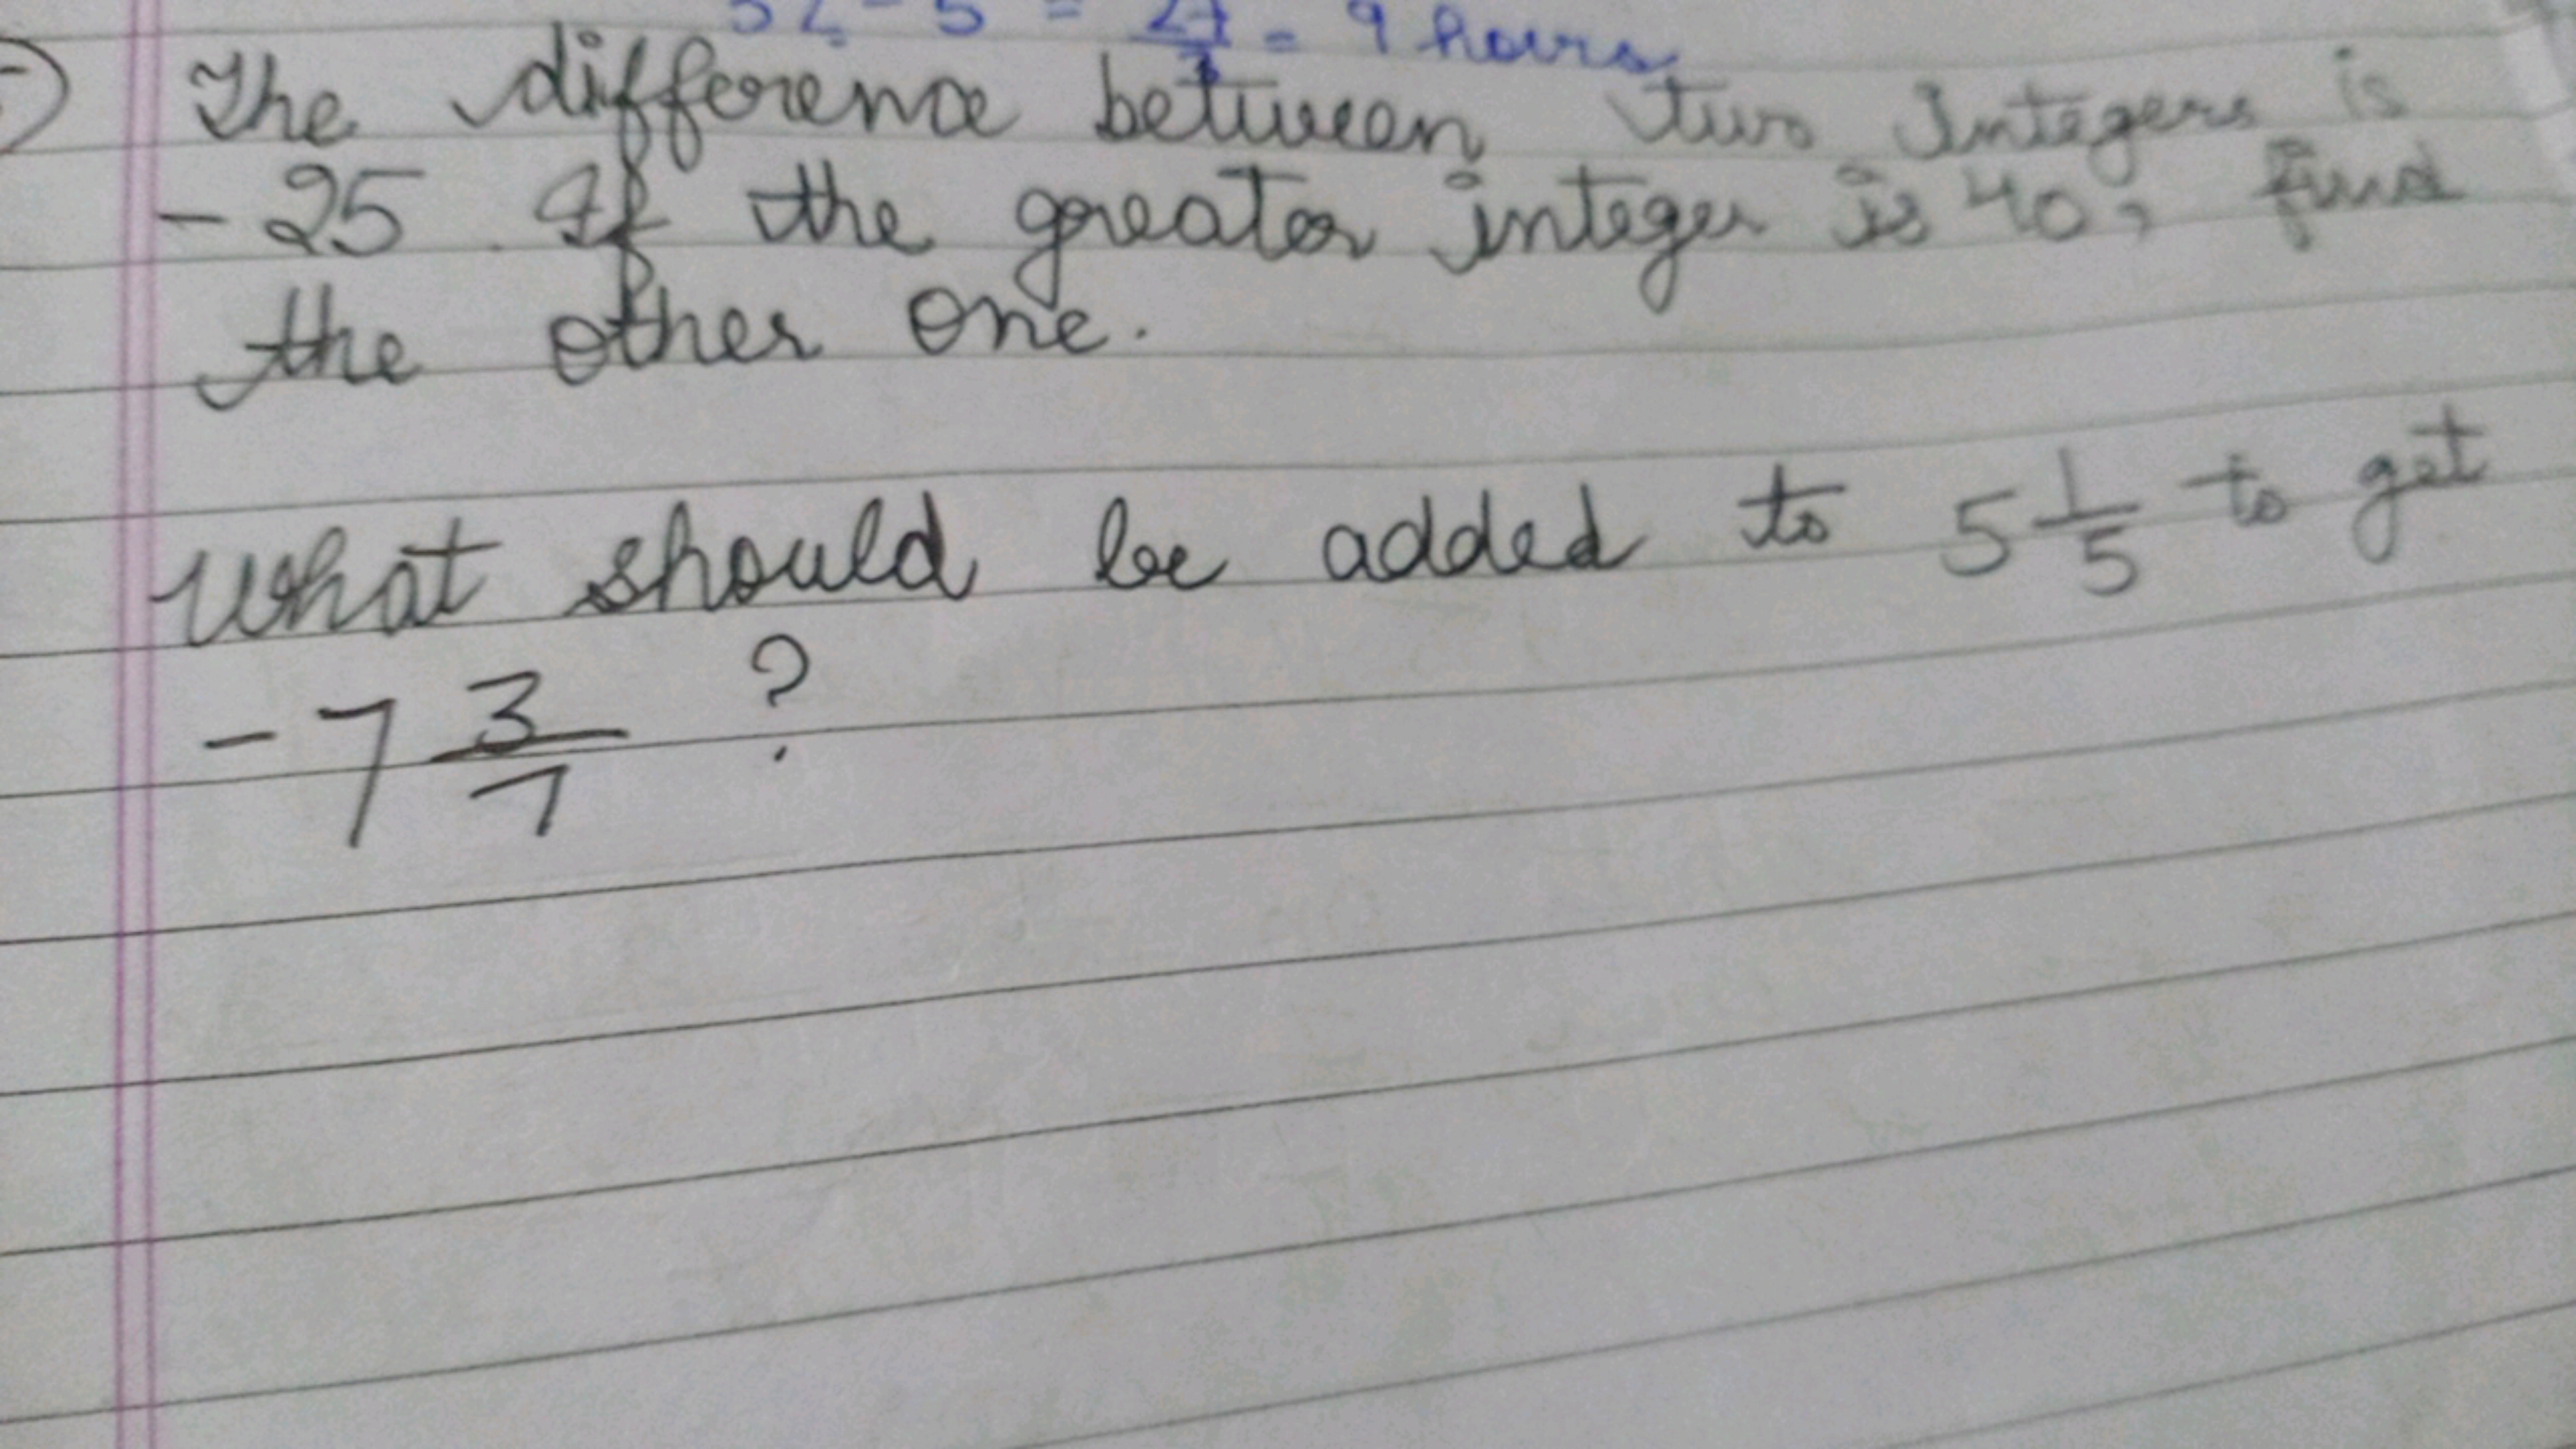 = 9 hours
The difference between two Integers is
- 25. If the greater integer is 40, find
the other one.
What should be added to 5 1/5 to get
- 7 3/7 ?